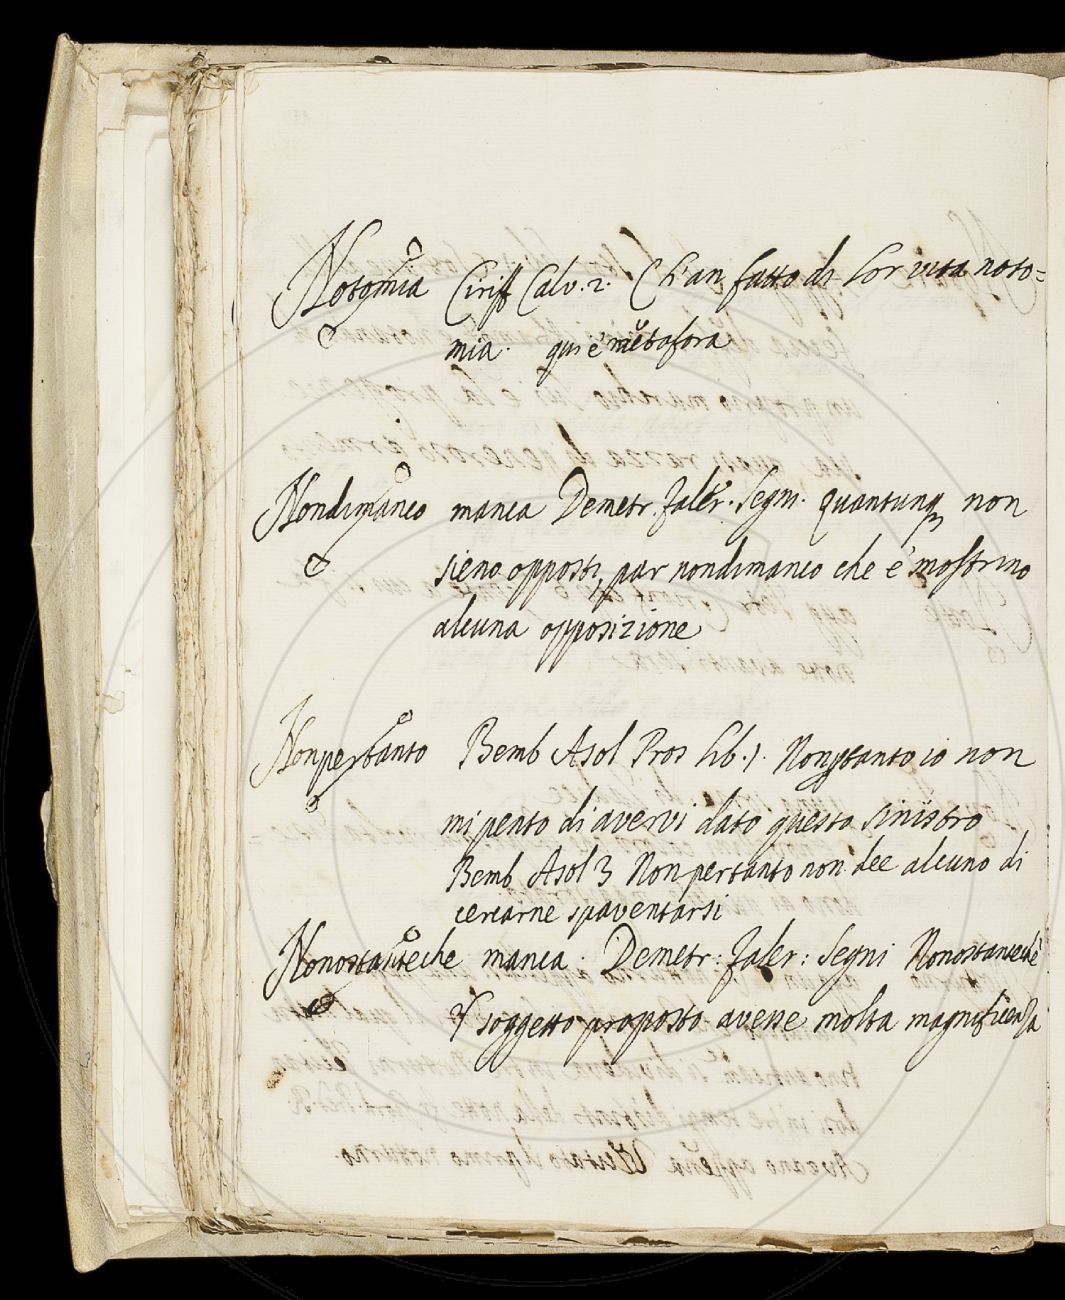 Notomia Ciriff Calv. 2. Ch'an fatto di lor vita noto=
mia. qui è metafora
Nondimanco manca Demetr. Faler. Segni. quantunq non
sieno opposti, par nondimanco che e' mostrino
alcuna opposizione
Nonpertanto Bemb Asol Pros lib. 1. Nonptanto io non
mi pento di avervi dato questo sinistro
Bemb Asol 3 Nonpertanto non dee alcuno di
cercarne spaventarsi
Nonostanteche manca. Demetr: Faler: Segni Nonostanteche
'l soggetto proposto avesse molta magnificenza